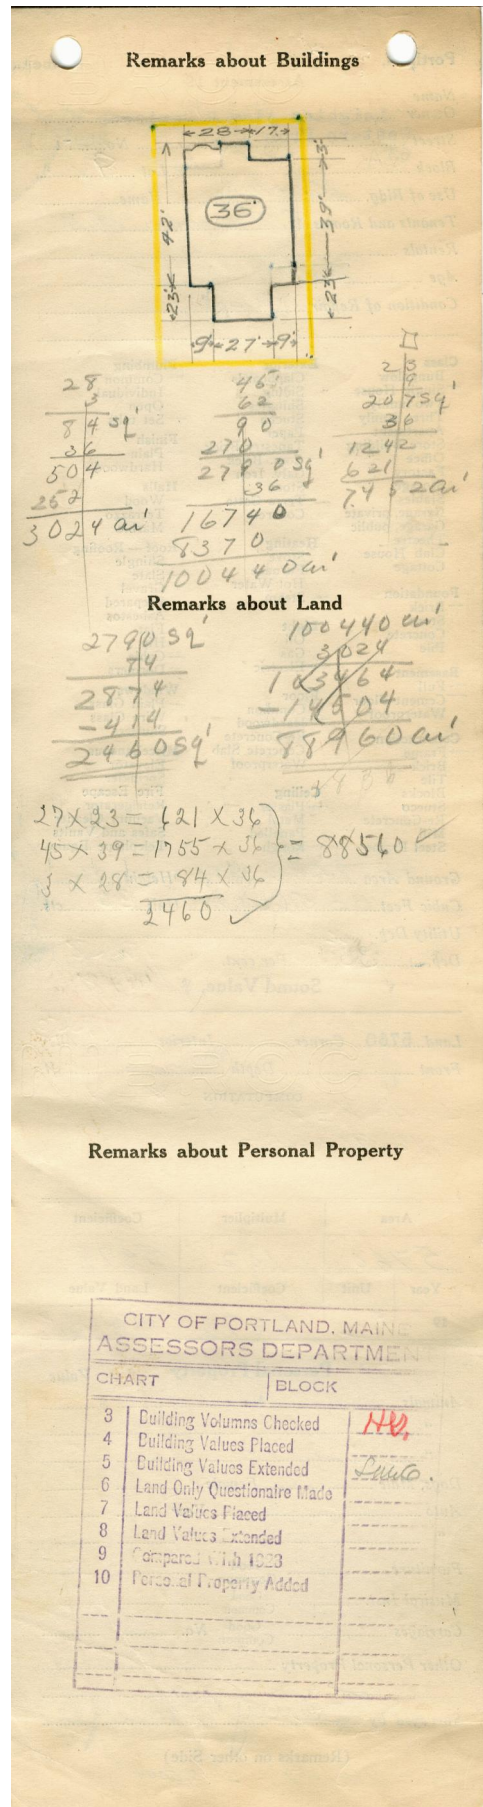 Remarks about Buildings
28 17
3'
42'
36'
39'
23'
23'
9' 27' 9'
28
3
84 sq'
36
504
252
3024 cu'
45
62
90
270
2790 sq'
36
16740
8370
100440 cu'
23
9
207 sq'
36
1242
621
7452 cu'
Remarks about Land
2790 sq'
84
2874
-414
2460 sq'
100440 cu'
3024
103464
-14504
88960 cu'
27 x 23 = 621 x 36
45 x 39 = 1755 x 36 = 88560
3 x 28 = 84 x 36
2460
Remarks about Personal Property
CITY OF PORTLAND, MAINE
ASSESSORS DEPARTMEN
CHART BLOCK
3 Building Volumns Checked
4 Building Values Placed
5 Building Values Extended
6 Land Only Questionaire Made
7 Land Values Placed
8 Land Values Extended
9 Compared With 1923
10 Personal Property Added